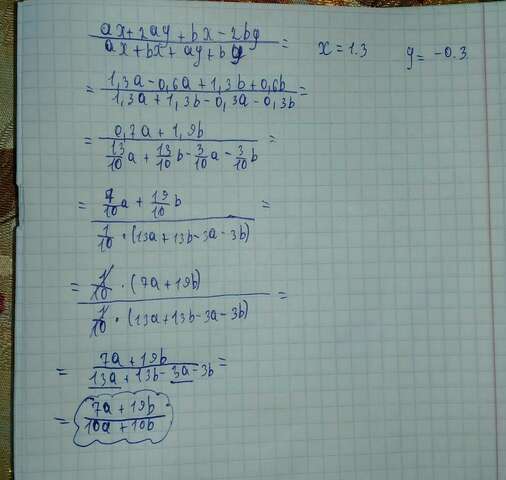 (ax+2ay+bx-2by)/(ax+bx+ay+by)= x=1.3 y=-0.3
=(1,3a-0,6a+1,3b+0,6b)/(1,3a+1,3b-0,3a-0,3b)=
=(0,7a+1,9b)/(13/10a+13/10b-3/10a-3/10b)=
=(7/10a+19/10b)/(1/10·(13a+13b-3a-3b))=
=(1/10·(7a+19b))/(1/10·(13a+13b-3a-3b))=
=(7a+19b)/(13a+13b-3a-3b)=
=(7a+19b)/(10a+10b)